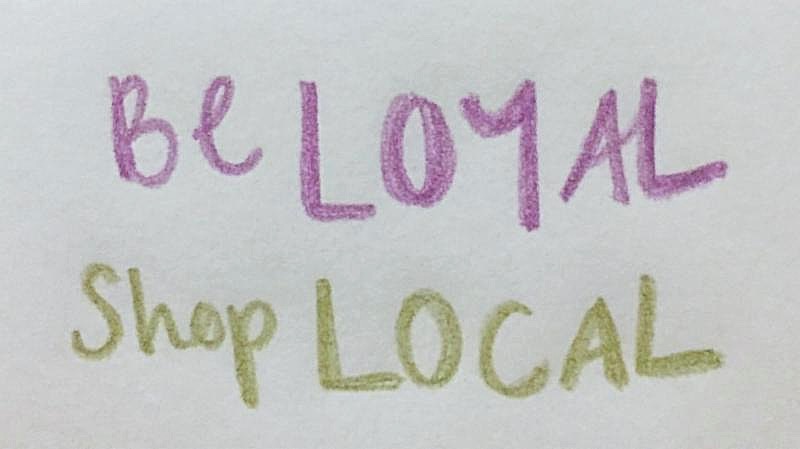 Be LOYAL
Shop LOCAL